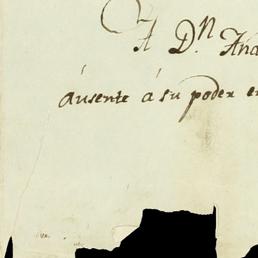 A D.n Ana
ausente á su poder en